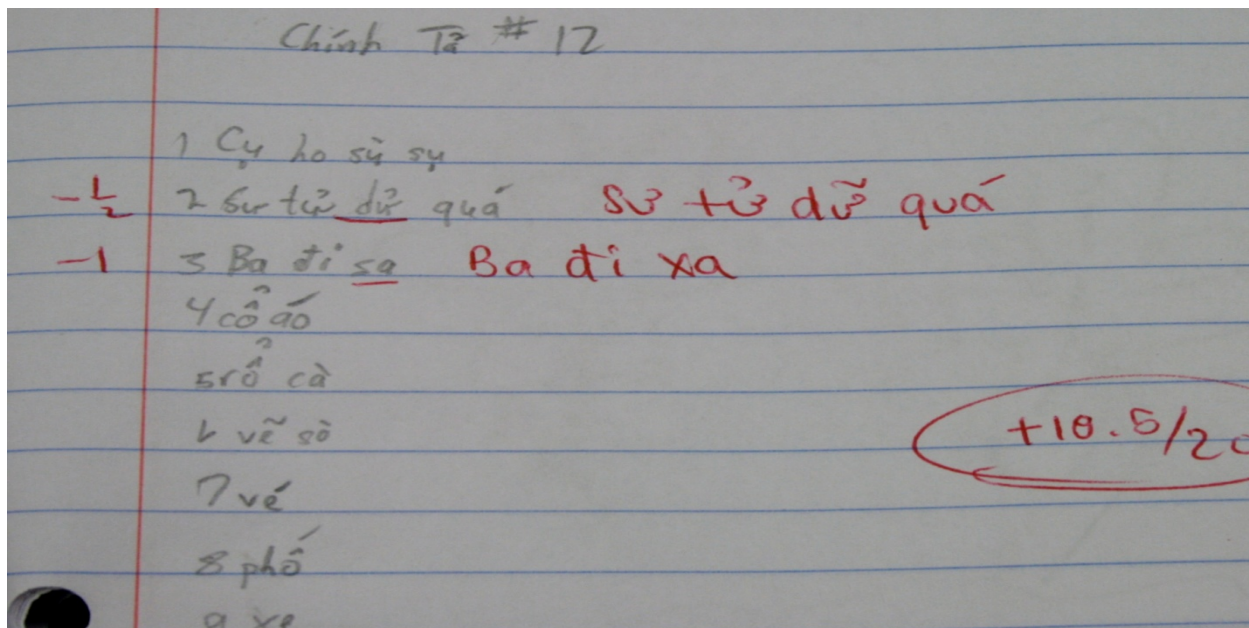 Chính Tả # 12
1 Cụ ho sù sụ
-1/2 2 Sư tử dử quá Sư tử dữ quá
-1 3 Ba đi sa Ba đi xa
4 cổ áo
5 rổ cà
6 vẽ sò
+18.5/20
7 vé
8 phố
9 xe